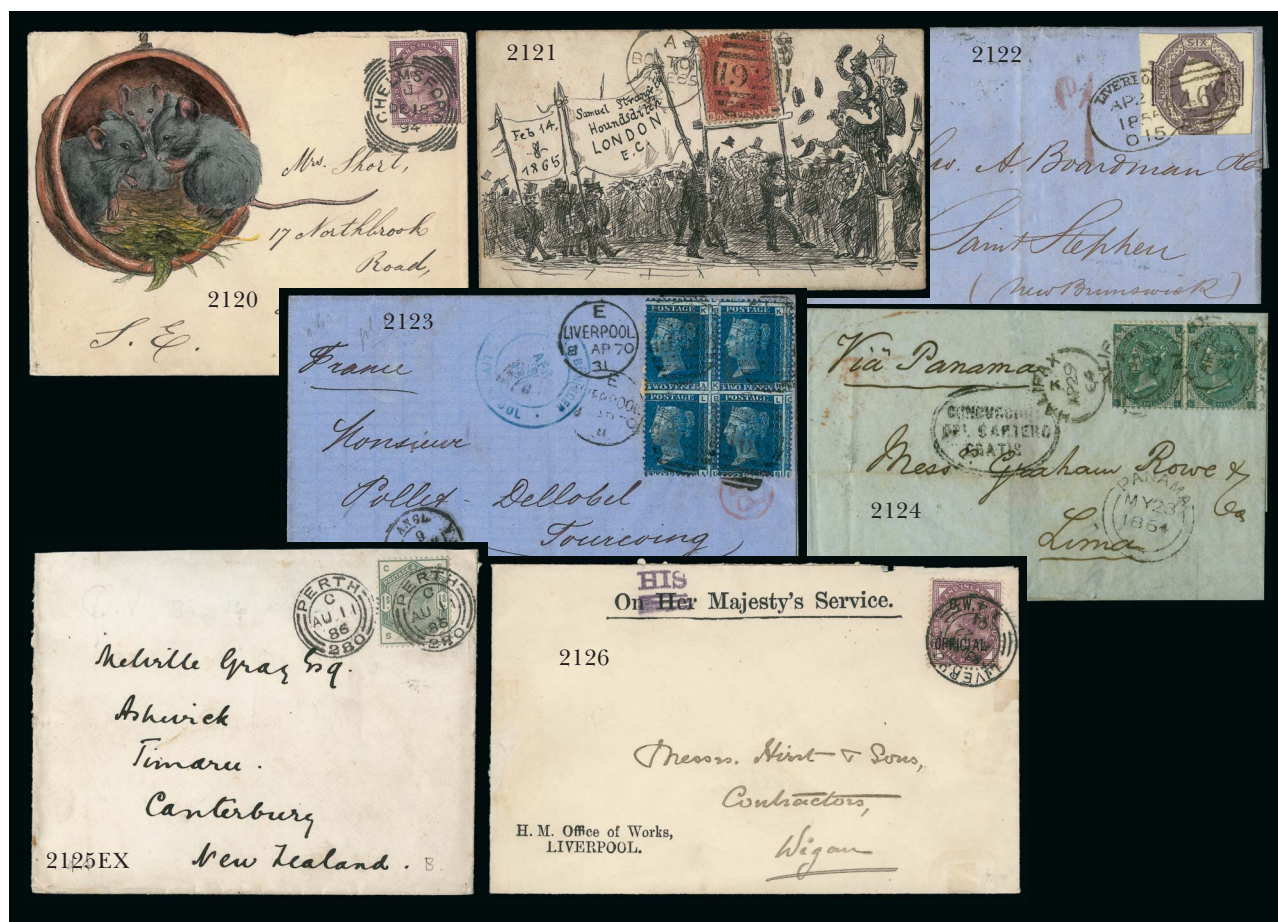 2120
CHELMSFORD
DE 18
94
Mrs. Short,
17 Northbrook
Road,
S. E.
2121
Feb 14.
of
1865
Samuel Strange
Houndsditch
LONDON
E.C.
2122
LIVERPO
AP 2
185
015
SIX
466
A. Boardman
Saint Stephen
(New Brunswick)
2123
France
E
LIVERPOOL
AP 70
31
POSTAGE
POSTAGE
TWO PENCE
TWO PENCE
POSTAGE
POSTAGE
Monsieur
Pollet-Dellobel
Tourcoing
ANGL
2124
Via Panama
HALIFAX
K
AP 29
64
CONDUCCION
DEL CARTERO
GRATIS
Mess Graham Rowe &
Co
Lima
PANAMA
MY 23
1864
2125EX
PERTH
C
AU 11
86
280
PERTH
C
AU 11
86
280
Melville Gray Esq.
Ashwick
Timaru.
Canterbury
New Zealand.
B.
2126
HIS
On Her Majesty's Service.
O.W.
OFFICIAL
LIVER
Messrs. Hirst & Sons,
Contractors,
Wigan
H. M. Office of Works,
LIVERPOOL.